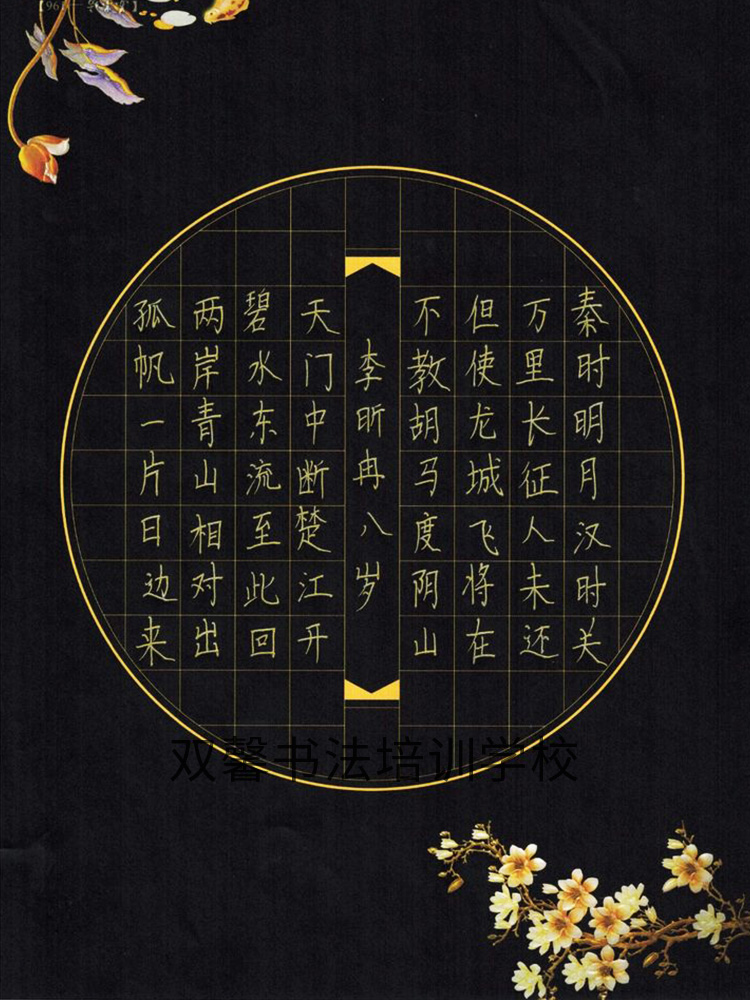 秦时明月汉时关
万里长征人未还
但使龙城飞将在
不教胡马度阴山
李昕冉八岁
天门中断楚江开
碧水东流至此回
两岸青山相对出
孤帆一片日边来
双馨书法培训学校